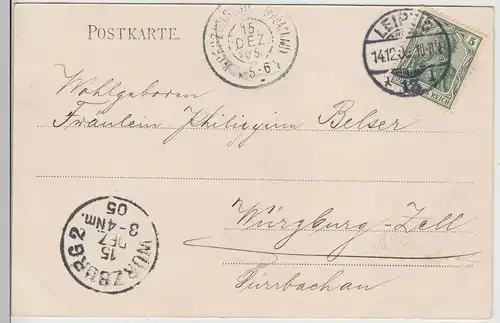 POSTKARTE.
15
DEZ
05
5-6
LEIPZIG
14.12.0
5
REICH
Wohlgeboren
Fräulein Philippine Belser
Würzburg-Zell
Dürrbachau
WÜRZBURG 2
15
DEZ
3-4 Nm.
05